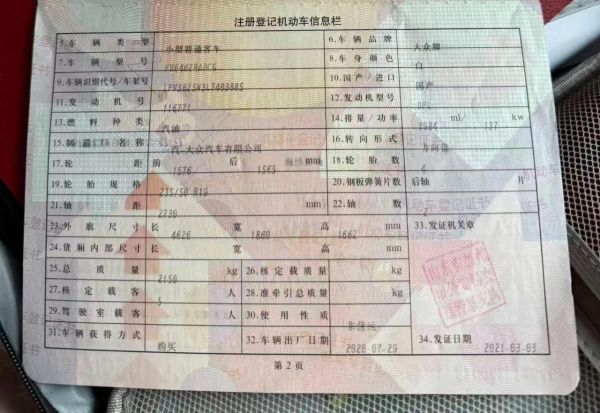 注册登记机动车信息栏
5.车辆类型 小型普通客车 6.车辆品牌 大众牌
7.车辆型号 8.车身颜色 白
9.车辆识别代号/车架号 10.国产/进口 国产
11.发动机号 116771 12.发动机型号 DPL
13.燃料种类 汽油 14.排量/功率 1984 ml/ 137 kw
15.制造厂名称 一汽-大众汽车有限公司 16.转向形式 方向盘
17.轮距 前 1576 后 1565 mm 18.轮胎数 4
19.轮胎规格 235/50 R19 20.钢板弹簧片数 后轴 片
21.轴距 2730 mm 22.轴数 2
23.外廓尺寸 长 4626 宽 1860 高 1662 mm 33.发证机关章
24.货厢内部尺寸 长 宽 高 mm
25.总质量 2150 kg 26.核定载质量 kg
27.核定载客 5 人 28.准牵引总质量 kg
29.驾驶室载客 人 30.使用性质 非营运
31.车辆获得方式 购买 32.车辆出厂日期 2020-07-29 34.发证日期 2021-03-03
第2页